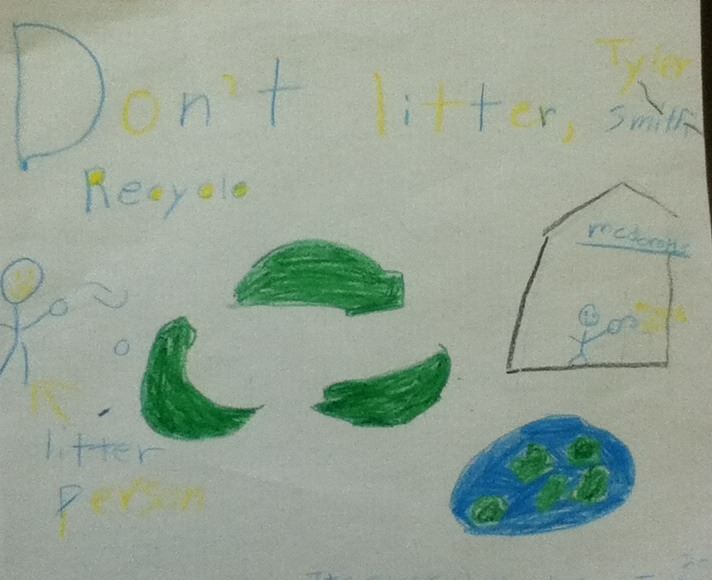 Don't litter,
Tyler
Smith
Recycle
litter
person